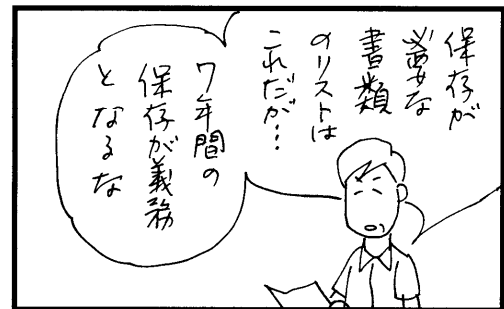 保存が
必要な
書類
のリストは
これだが…
7年間の
保存が義務
となるな